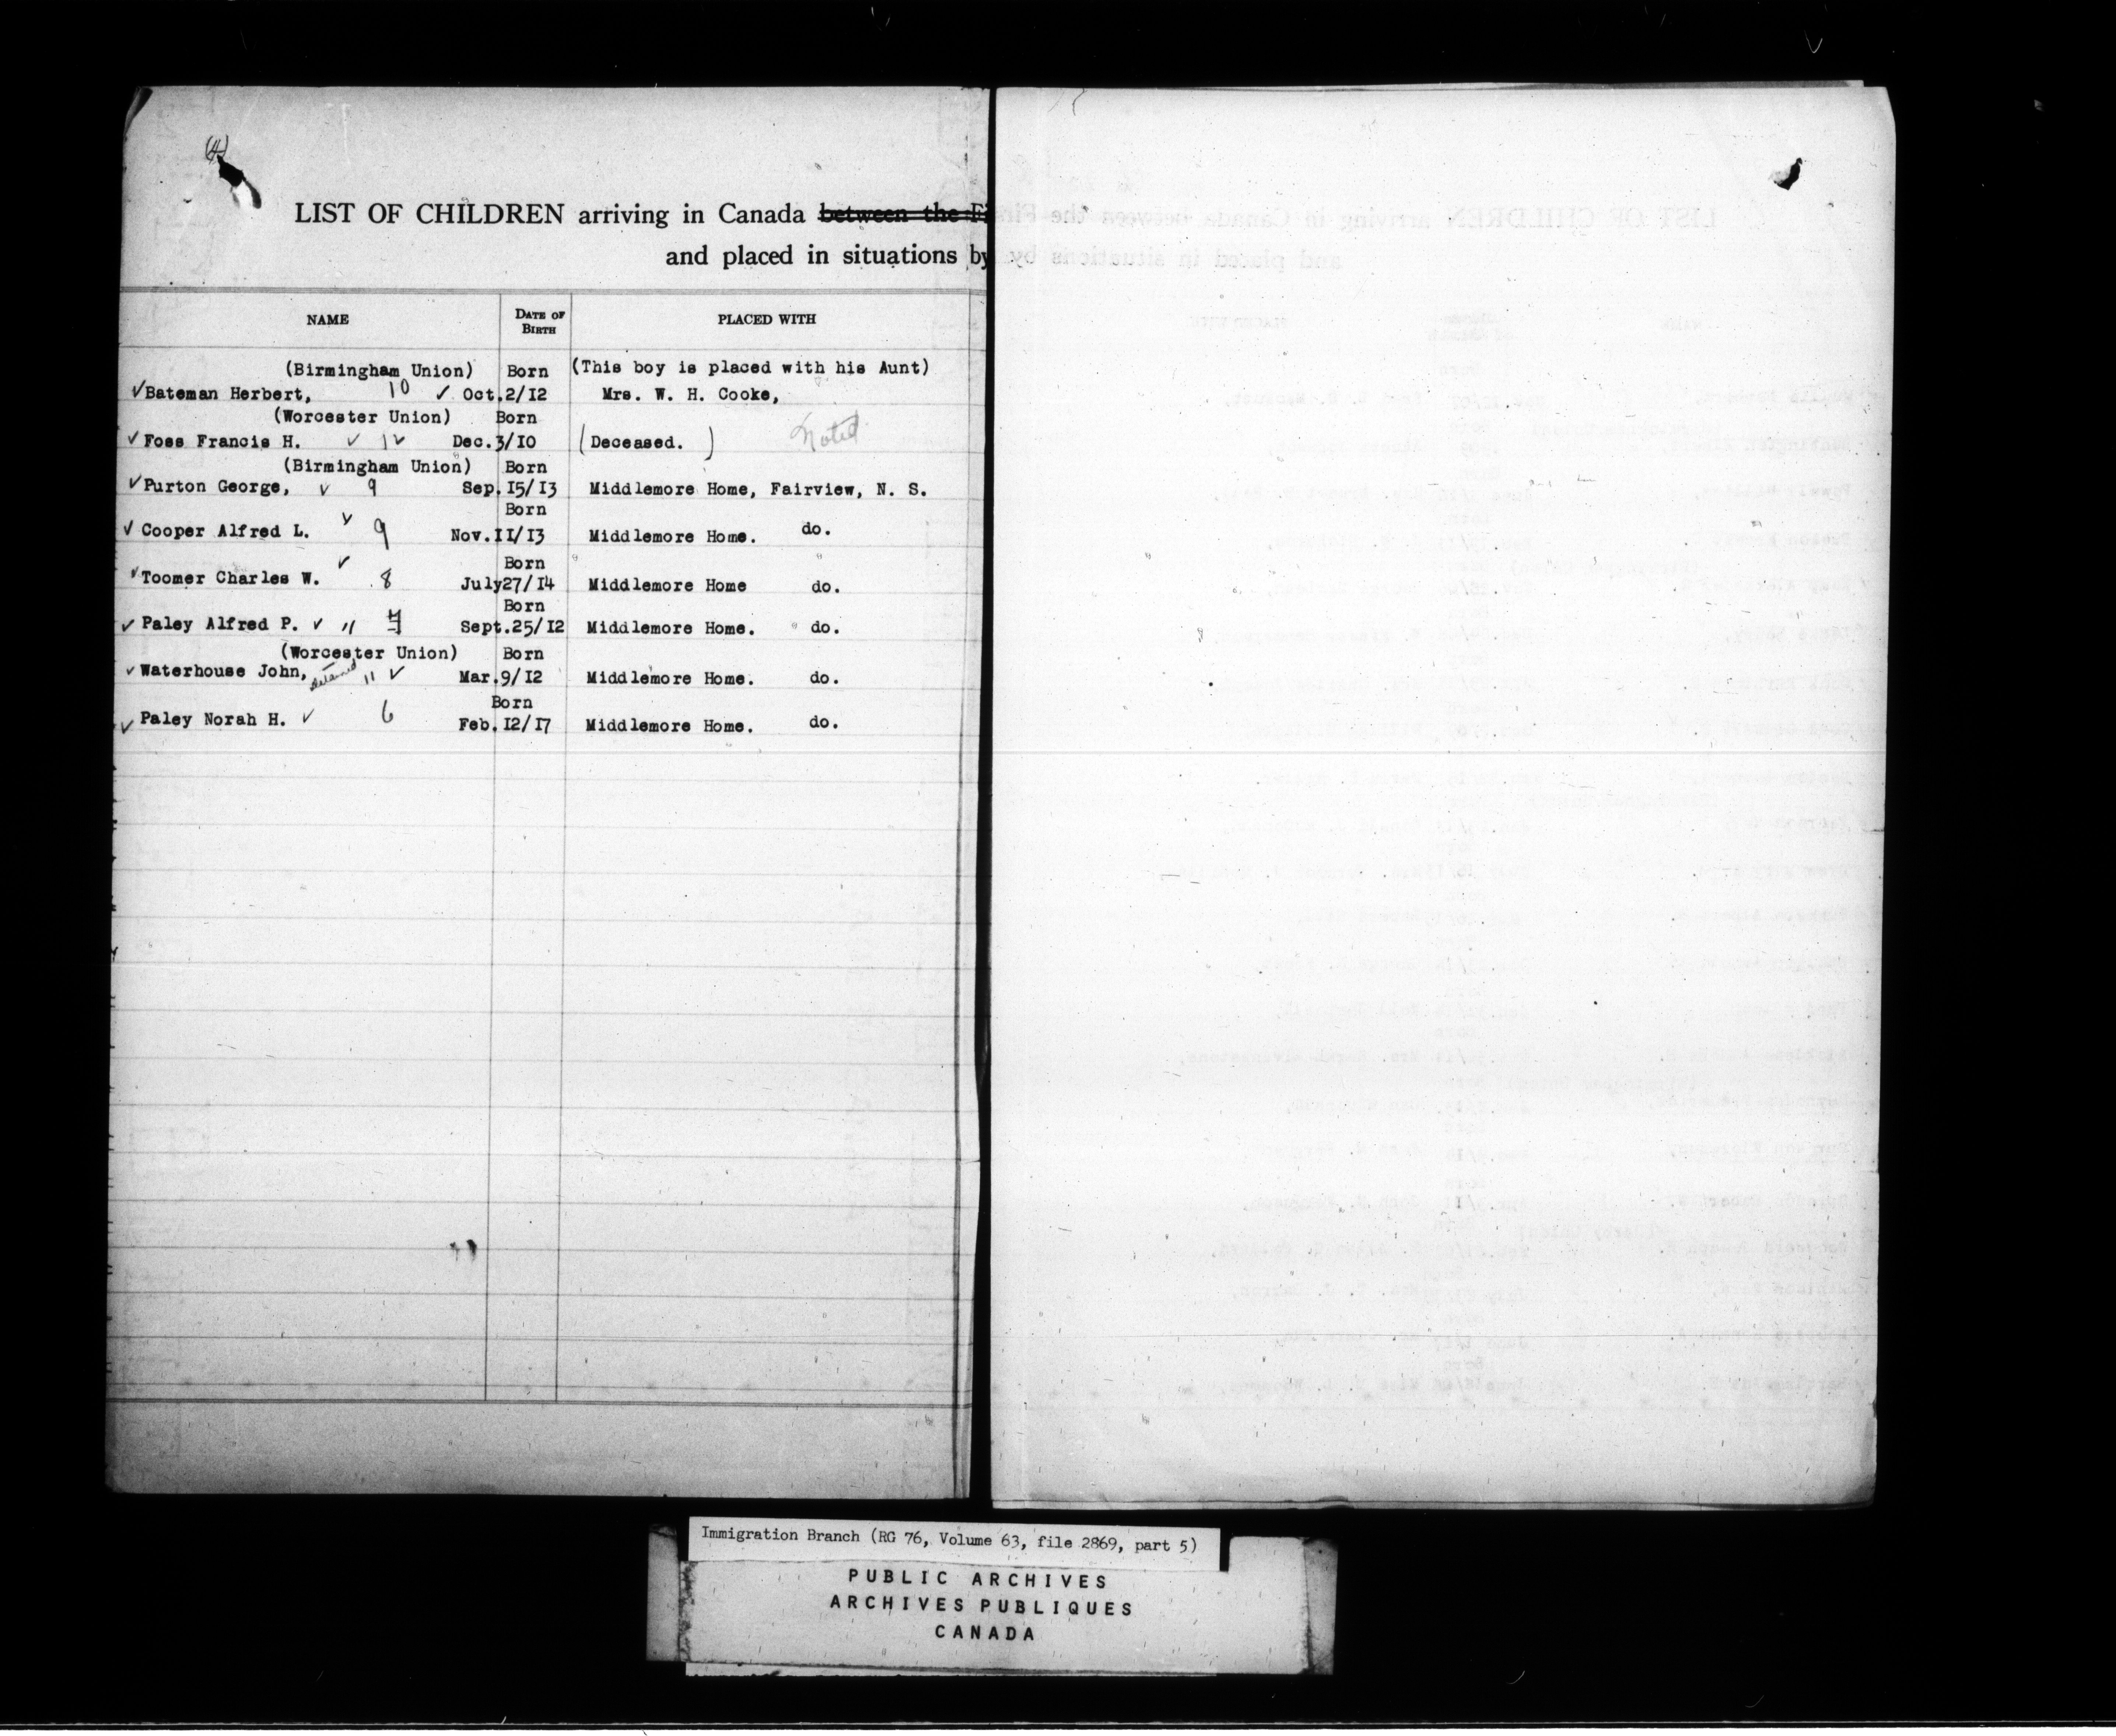 (4)
LIST OF CHILDREN arriving in Canada between the Fi
and placed in situations by
NAME DATE OF BIRTH PLACED WITH
(Birmingham Union) Born (This boy is placed with his Aunt)
✓Bateman Herbert, 10 ✓ Oct.2/12 Mrs. W. H. Cooke,
(Worcester Union) Born
✓ Foss Francis H. ✓ 12 Dec.3/10 (Deceased.) Noted
(Birmingham Union) Born
✓Purton George, ✓ 9 Sep.15/13 Middlemore Home, Fairview, N. S.
Born
✓ Cooper Alfred L. ✓ 9 Nov.11/13 Middlemore Home. do.
Born
✓Toomer Charles W. ✓ 8 July27/14 Middlemore Home do.
Born
✓ Paley Alfred P. ✓ 11 Sept.25/12 Middlemore Home. do.
(Worcester Union) Born
✓ Waterhouse John, 11 ✓ Mar.9/12 Middlemore Home. do.
Born
✓ Paley Norah H. ✓ 6 Feb.12/17 Middlemore Home. do.
Immigration Branch (RG 76, Volume 63, file 2869, part 5)
PUBLIC ARCHIVES
ARCHIVES PUBLIQUES
CANADA